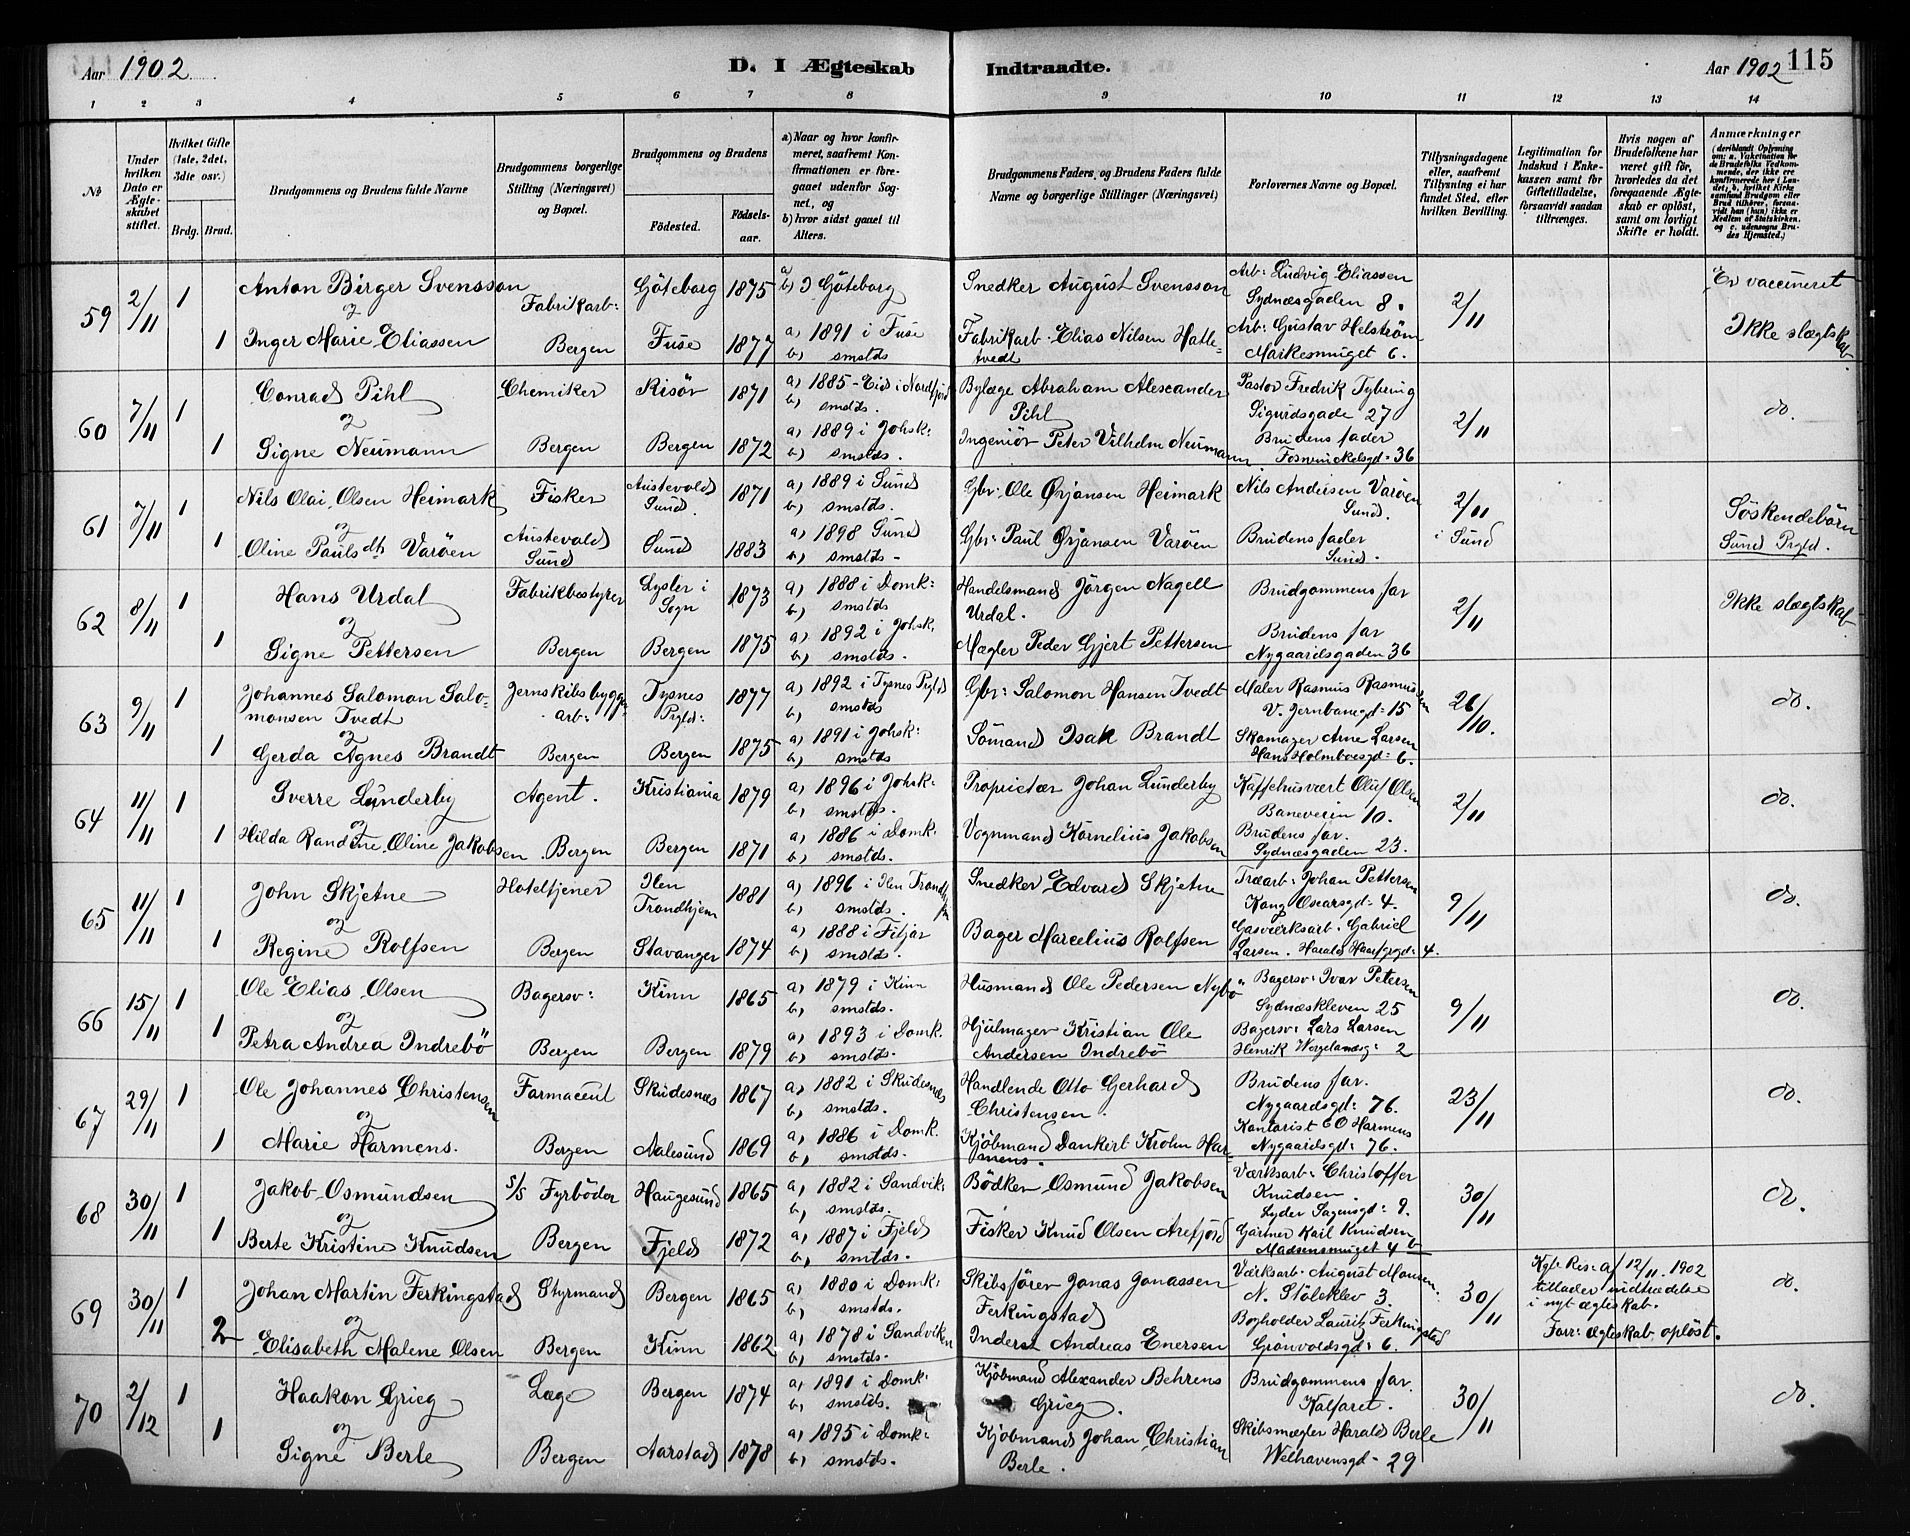 Aar 1902
D. I Ægteskab Indtraadte.
Aar 1902 115
1 2 3 4 5 6 7 8 9 10 11 12 13 14
No
Under hvilken Dato er Ægteskabet stiftet.
Hvilket Gifte (1ste, 2det, 3die osv.)
Brdg. Brud.
Brudgommens og Brudens fulde Navne
Brudgommens borgerlige Stilling (Næringsvei) og Bopæl.
Brudgommens og Brudens
Fødested.
Fødselsaar.
a) Naar og hvor konfirmeret, saafremt Konfirmationen er foregaaet udenfor Sognet, og
b) hvor sidst gaaet til Alters.
Brudgommens Faders og Brudens Faders fulde Navne og borgerlige Stillinger (Næringsvei)
Forlovernes Navne og Bopæl.
Tillysningsdagene eller, saafremt Tillysning ei har fundet Sted, efter hvilken Bevilling.
Legitimation for Indskud i Enkekassen samt for Giftetilladelse, forsaavidt saadan tiltrænges.
Hvis nogen af Brudefolkene har været gift før, hvorledes da det foregaaende Ægteskab er opløst, samt om lovligt Skifte er holdt.
Anmærkninger
59 2/11 1 Anton Birger Svensson Fabrikarb: Göteborg 1875 a) b) I Göteborg Snedker August Svensson Arb: Ludvig Eliassen Sydnæsgaden 8. 2/11 Er vaccineret
og
1 Inger Marie Eliassen Bergen Fuse 1877 a) 1891 i Fuse b) smstds Fabrikarb. Elias Nilsen Hatletvedt Arb: Gustav Helström Markesmuget 6. Ikke slægtskab
60 7/11 1 Conrad Pihl Chemiker Risör 1871 a) 1885 - Eid i Nordfjord b) smstds. Bylæge Abraham Alexander Pihl Pastor Fredrik Tybring Sigurdsgade 27 2/11 do.
og
1 Signe Neumann Bergen Bergen 1872 a) 1889 i Johsk: b) smstds. Ingeniör Peter Vilhelm Neumann Brudens fader Fosswinckelsgd: 36
61 7/11 1 Nils Olai Olsen Heimark Fisker Austevold Sund. 1871 a) 1889 i Sund b) smstds. Gbr: Ole Ørjansen Heimark Nils Andersen Varöen Sund. 2/11 i Sund Söskendebörn
og
1 Oline Paulsdt: Varöen Austevold Sund Sund 1883 a) 1898 Sund b) smstds - Gbr: Paul Ørjansen Varöen Brudens fader Sund. Sund Prgld.
62 8/11 1 Hans Urdal Fabrikbestyrer Lyster i Sogn 1873 a) 1888 i Domk: b) smstds Handelsmand Jörgen Nagell Urdal. Brudgommens far 2/11 Ikke slægtskab
og
1 Signe Pettersen Bergen Bergen 1875 a) 1892 i Johsk. b) smstds. Mægler Peder Gjert Pettersen Brudens far Nygaardsgaden 36
63 9/11 1 Johannes Salomon Salomonsen Tvedt Jernskibsbyggerarb: Tysnes Prgld: 1877 a) 1892 i Tysnes Prgld b) smstds Gbr: Salomon Hansen Tvedt Maler Rasmus Rasmussen V. Jernbanegd: 15 26/10. do.
og
1 Gerda Agnes Brandt Bergen Bergen 1875 a) 1891 i Johsk: b) smstds Sömand Isak Brandt Skomager Arne Larsen Hans Holmboesgd: 6.
64 11/11 1 Sverre Lunderby Agent. Kristiania 1879 a) 1896 i Johsk: b) smstds. Proprietær Johan Lunderby Kaffehusvært Oluf Olsen Baneveien 10. 2/11 do.
og
1 Hilda Randine Oline Jakobsen Bergen Bergen 1871 a) 1886 i Domk: b) smstds. Vognmand Kornelius Jakobsen Brudens far. Sydnæsgaden 23.
65 11/11 1 John Skjetne Hoteltjener Ilen Trondhjem 1881 a) 1896 i Ilen Trondhjem b) smstds. Snedker Edvard Skjetne Træarb: Johan Pettersen Kong Oscarsgd: 4. 9/11 do.
og
1 Regine Rolfsen Bergen Stavanger 1874 a) 1888 i Fitjar b) smstds. Bager Marcelius Rolfsen Gasværksarb. Gabriel Larsen. Harald Haarfgrgd: 4.
66 15/11 1 Ole Elias Olsen Bagersv: Kinn 1865 a) 1879 i Kinn b) smstds. Husmand Ole Pedersen Nybö Bagersv: Ivar Petersen Sydnæskleven 25 9/11 do.
og
1 Petra Andrea Indrebö Bergen Bergen 1879 a) 1893 i Domk. b) smstds. Hjulmager Kristian Ole Andersen Indrebö Bagersv: Lars Larsen Henrik Wergelandsg: 2
67 29/11 1 Ole Johannes Christensen Farmaceut Skudesnæs 1867 a) 1882 i Skudesnæs b) smstds. Handlende Otto Gerhard Christensen. Brudens far. Nygaardsgd: 76. 23/11 do.
og
1 Marie Harmens. Bergen Aalesund 1869 a) 1886 i Domk. b) smstds. Kjöbmand Dankert Krohn Harmens. Kontorist Harmens Nygaardsgd: 76.
68 30/11 1 Jakob Osmundsen s/s Fyrböder Haugesund 1865 a) 1882 i Sandvik: b) smstds. Bödker Osmund Jakobsen Værksarb: Christoffer Knudsen. Lyder Sagensgd: 9. 30/11 do.
og
1 Berte Kristine Knudsen Bergen Fjeld 1872 a) 1887 i Fjeld b) smstds. Fisker Knud Olsen Arefjord Gartner Karl Knudsen Madsensmuget 4 b
69 30/11 1 Johan Martin Ferkingstad Styrmand Bergen 1865 a) 1880 i Domk: b) smstds. Skibsförer Jonas Jonassen Ferkingstad Værksarb. August Monsen. N. Stöleklev 3. 30/11 Kgl. Res: af 12/11. 1902 tillader indtrædelse i nyt ægteskab. do.
og
2 Elisabeth Malene Olsen Bergen Kinn 1862 a) 1878 i Sandviken b) smstds. Inderst Andreas Enersen Bogholder Lauritz Ferkingstad Grönvoldsgd: 6. Forr: ægteskab oplöst.
70 2/12 1 Haakon Grieg Læge Bergen 1874 a) 1891 i Domk: b) smstds. Kjöbmand Alexander Behrens Grieg. Brudgommens far. Kalfaret. 30/11 do.
og
1 Signe Berle Bergen Aarstad 1878 a) 1895 i Domk: b) smstds. Kjöbmand Johan Christian Berle. Skibsmægler Harald Berle Welhavensgd - 29